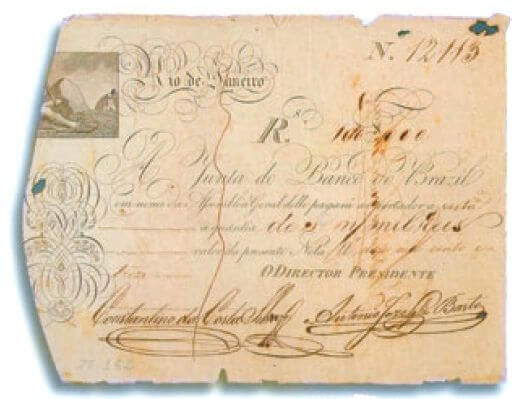 N. 12113
Rio de Janeiro
Rs. 100,000
A Junta do Banco do Brazil
em nome da Assemblea Geral delle pagará ao portador a vista
a quantia de cem mil reis
valor da presente Nota
O DIRECTOR PRESIDENTE
Constantino da Costa
Antonio Joze